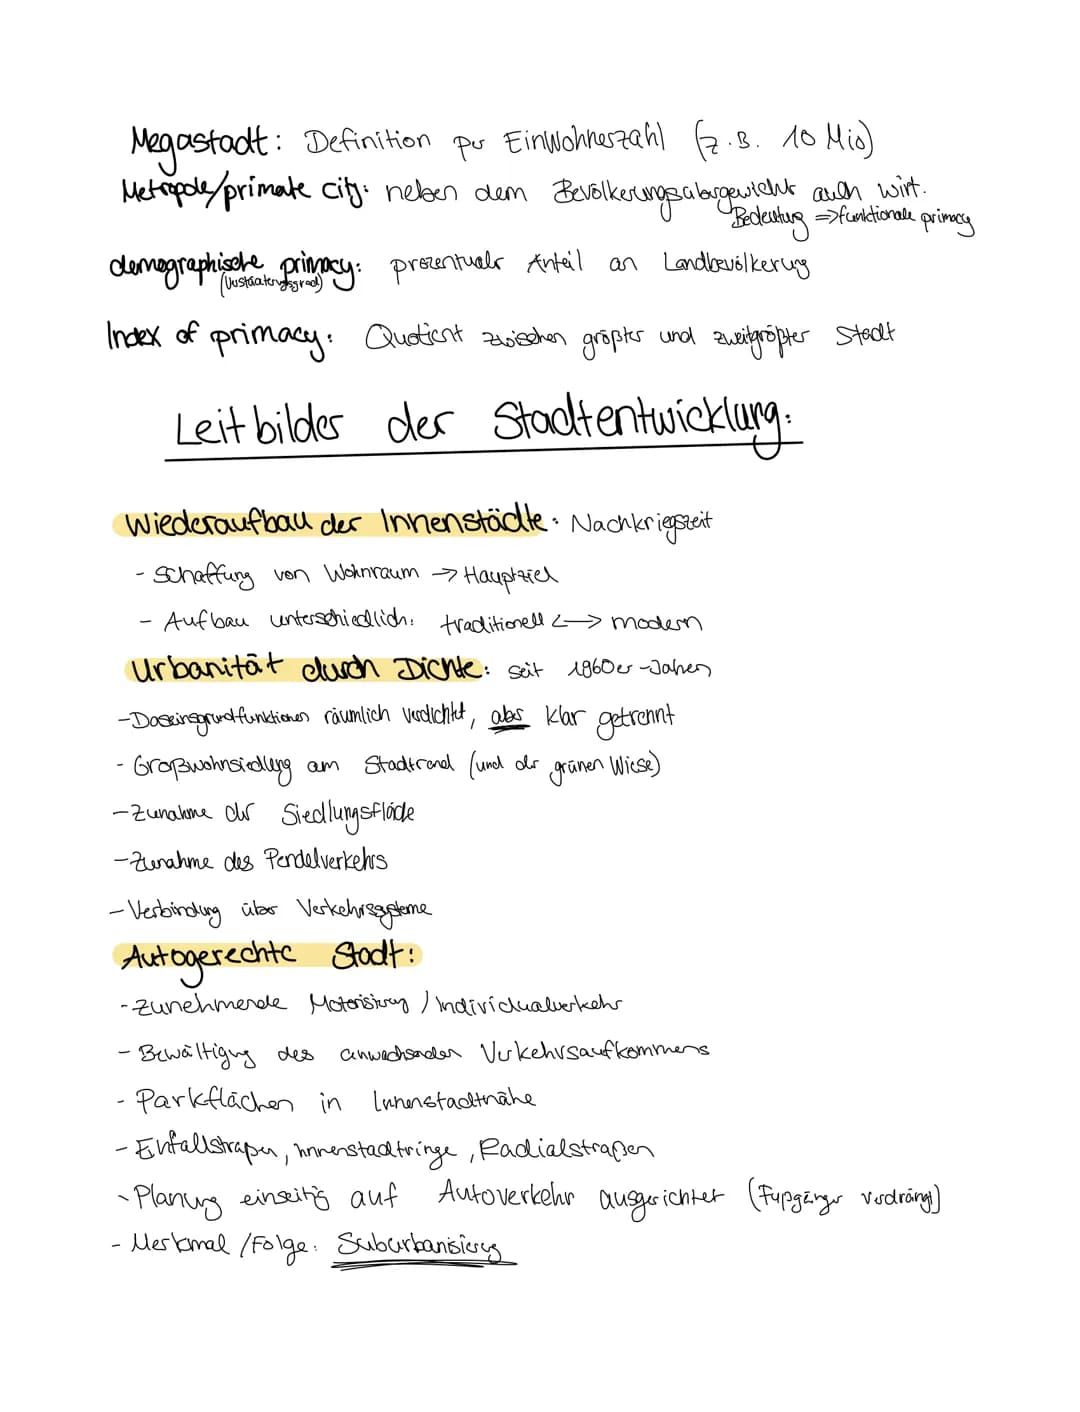 Megastadt: Definition per Einwohnerzahl (z.B. 10 Mio)
Metropole/primate city: neben dem Bevölkerungsübergewicht auch wirt.
Bedeutung => funktionale primacy
demographische primacy: prozentualer Anteil an Landbevölkerung
(Verstädterungsgrad)
Index of primacy: Quotient zwischen größter und zweitgrößter Stadt
Leitbilder der Stadtentwicklung:
Wiederaufbau der Innenstädte: Nachkriegszeit
- Schaffung von Wohnraum → Hauptziel
- Aufbau unterschiedlich: traditionell <-> modern
Urbanität durch Dichte: seit 1960er-Jahren
- Daseinsgrundfunktionen räumlich verdichtet, aber klar getrennt
- Großwohnsiedlung am Stadtrand (und der grünen Wiese)
- Zunahme der Siedlungsfläche
- Zunahme des Pendelverkehrs
- Verbindung über Verkehrssysteme
Autogerechte Stadt:
- Zunehmende Motorisierung / Individualverkehr
- Bewältigung des anwachsenden Verkehrsaufkommens
- Parkflächen in Innenstadtnähe
- Einfallstraßen, Innenstadtringe, Radialstraßen
- Planung einseitig auf Autoverkehr ausgerichtet (Fußgänger verdrängt)
- Merkmal / Folge: Suburbanisierung